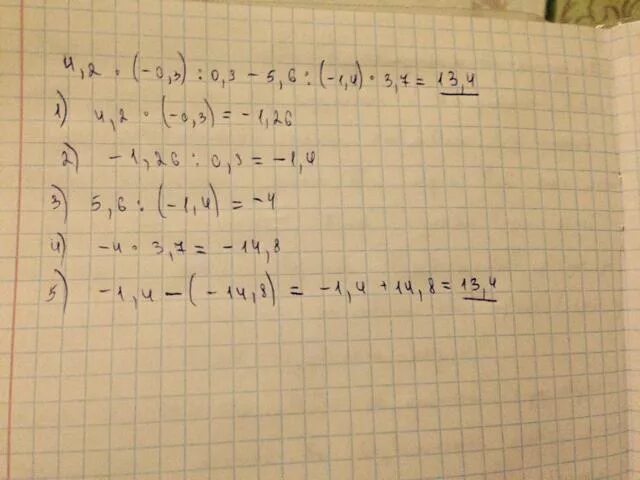 4,2 · (-0,3) : 0,9 - 5,6 : (-1,4) · 3,7 = 13,4
1) 4,2 · (-0,3) = -1,26
2) -1,26 : 0,9 = -1,4
3) 5,6 : (-1,4) = -4
4) -4 · 3,7 = -14,8
5) -1,4 - (-14,8) = -1,4 + 14,8 = 13,4